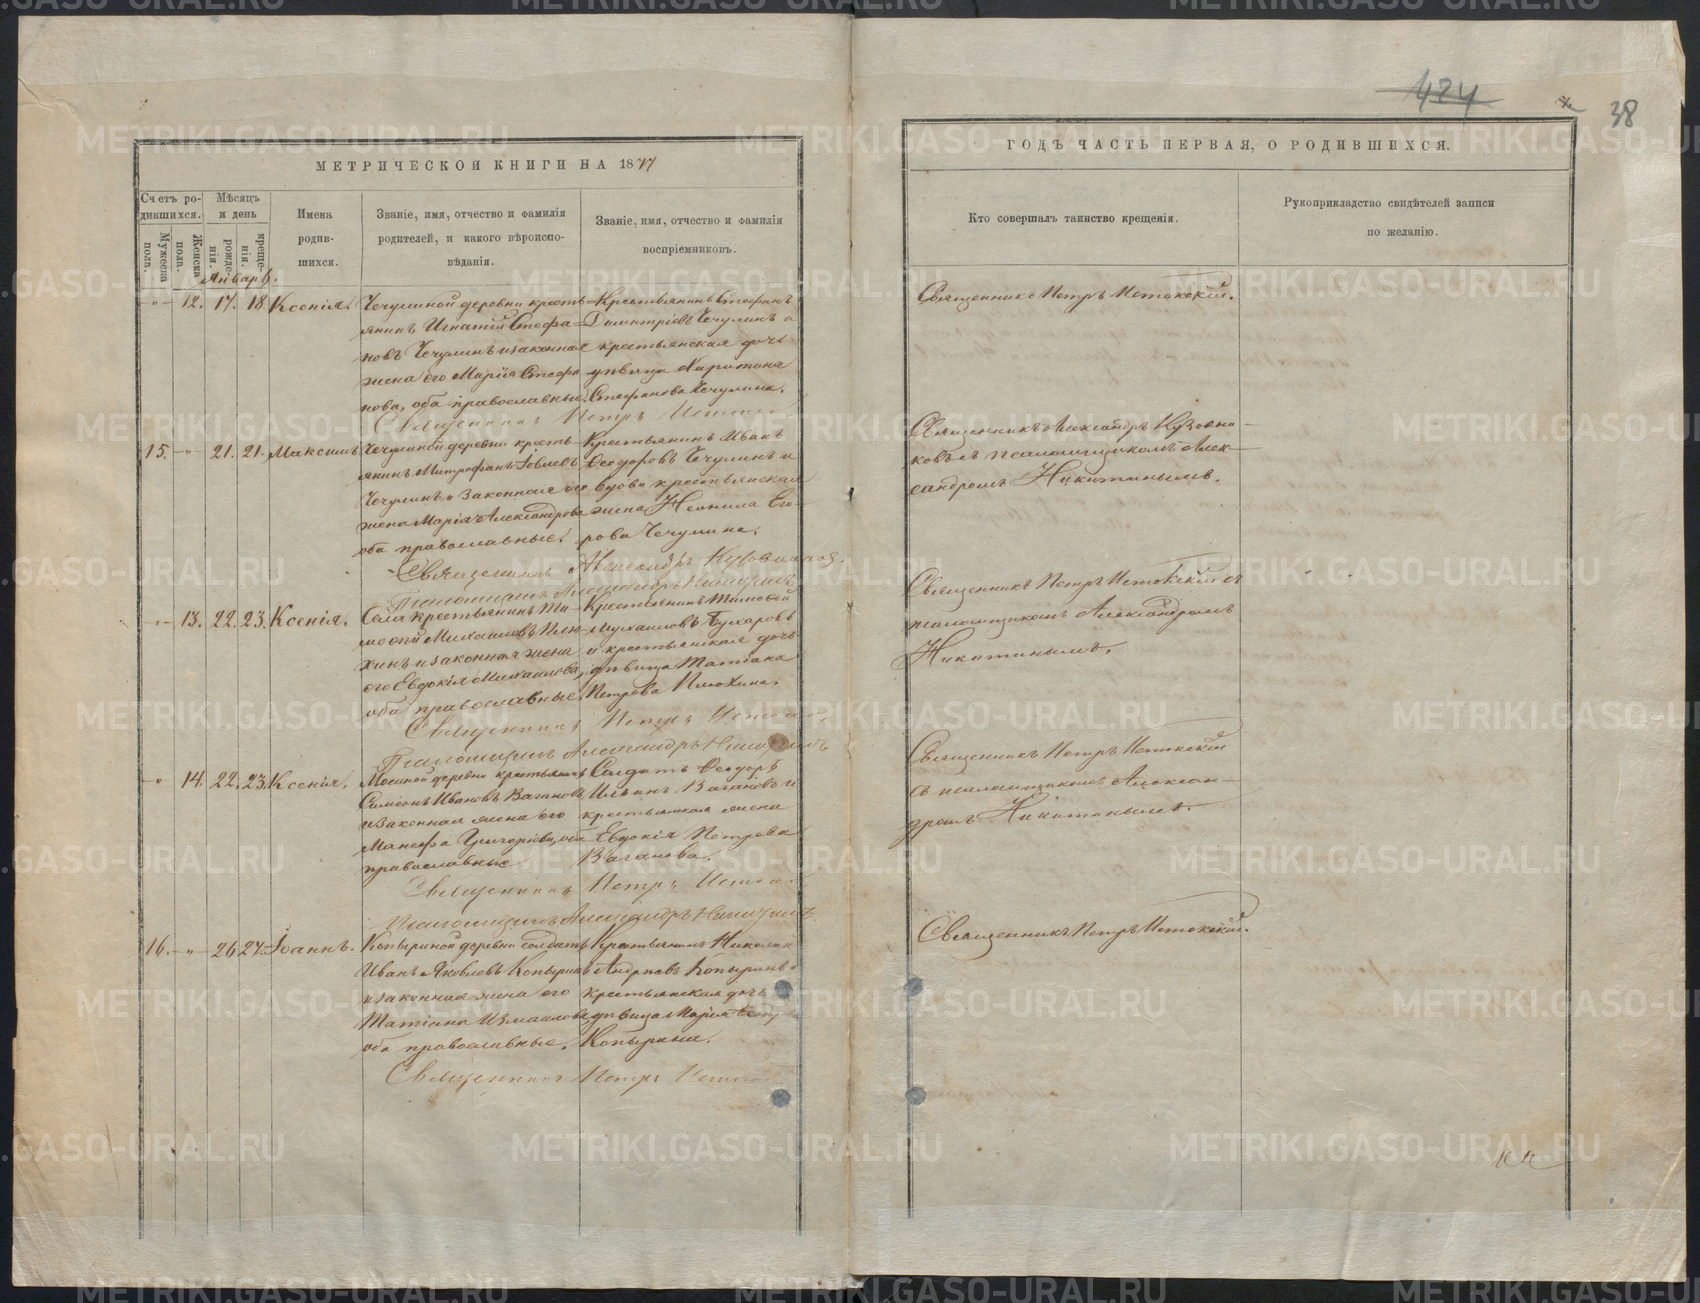 424
38
МЕТРИЧЕСКОЙ КНИГИ НА 1877
ГОДЪ ЧАСТЬ ПЕРВАЯ, О РОДИВШИХСЯ.
Счетъ ро-
дившихся.
Мужеска
пола.
Женска
пола.
Мѣсяцъ
и день
рожде-
нія.
креще-
нія.
Имена
родив-
шихся.
Званіе, имя, отчество и фамилія
родителей, и какого вѣроиспо-
вѣданія.
Званіе, имя, отчество и фамилія
воспріемниковъ.
Кто совершалъ таинство крещенія.
Рукоприкладство свидѣтелей записи
по желанію.
Январь.
12. 17. 18. Ксенія.
Чечулиной деревни кресть-
янинъ Игнатій Стефа-
новъ Чечулинъ и законная
жена его Марія Стефа
нова, оба православные.
Крестьянинъ Стефанъ
Димитріевъ Чечулинъ и
крестьянская дочь
дѣвица Харитина
Стефанова Чечулина.
Священникъ Петръ Истокскій.
Священникъ Петръ
15. 21. 21. Максимъ
Чечулиной деревни кресть-
янинъ Митрофанъ Іовлевъ
Чечулинъ и законная его
жена Марія Александрова
оба православные.
Крестьянинъ Иванъ
Ѳеодоровъ Чечулинъ и
вдова крестьянская
жена Неонила Его-
рова Чечулина.
Священникъ Александръ Кузовни-
ковъ съ псаломщикомъ Алек-
сандромъ Никитинымъ.
Священникъ Александръ Кузовниковъ.
Псаломщикъ Александръ Никитинъ
13. 22. 23. Ксенія.
Села крестьянинъ Ти-
моѳей Михаиловъ Плю-
хинъ и законная жена
его Евдокія Михаилова,
оба православные.
Крестьянинъ Тимоѳей
Михаиловъ Бухаровъ
и крестьянская дочь
дѣвица Татіана
Петрова Плюхина.
Священникъ Петръ Истокскій съ
псаломщикомъ Александромъ
Никитинымъ.
Священникъ Петръ
Псаломщикъ Александръ Никитинъ
14. 22. 23. Ксенія.
деревни крестьянинъ
Симеонъ Ивановъ Вагановъ
и законная жена его
Григорьева, оба
православные
Солдатъ Ѳеодоръ
Ильинъ Вагановъ и
крестьянская жена
Евдокія Петрова
Ваганова.
Священникъ Петръ Истокскій
съ псаломщикомъ Алексан-
дромъ Никитинымъ.
Священникъ Петръ
Псаломщикъ Александръ Никитинъ
16. 26 27. Іоаннъ.
Копыриной деревни солдатъ
Иванъ Яковлевъ Копыринъ
и законная жена его
Татіана Измаилова
оба православные.
Крестьянинъ Николай
Андреевъ Копыринъ и
крестьянская дочь
дѣвица Марія
Копырина.
Священникъ Петръ Истокскій.
Священникъ Петръ
METRIKI.GASO-URAL.RU